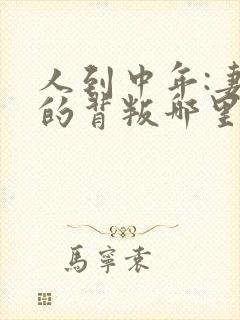 人到中年:妻
的背叛哪里
馬寧袁